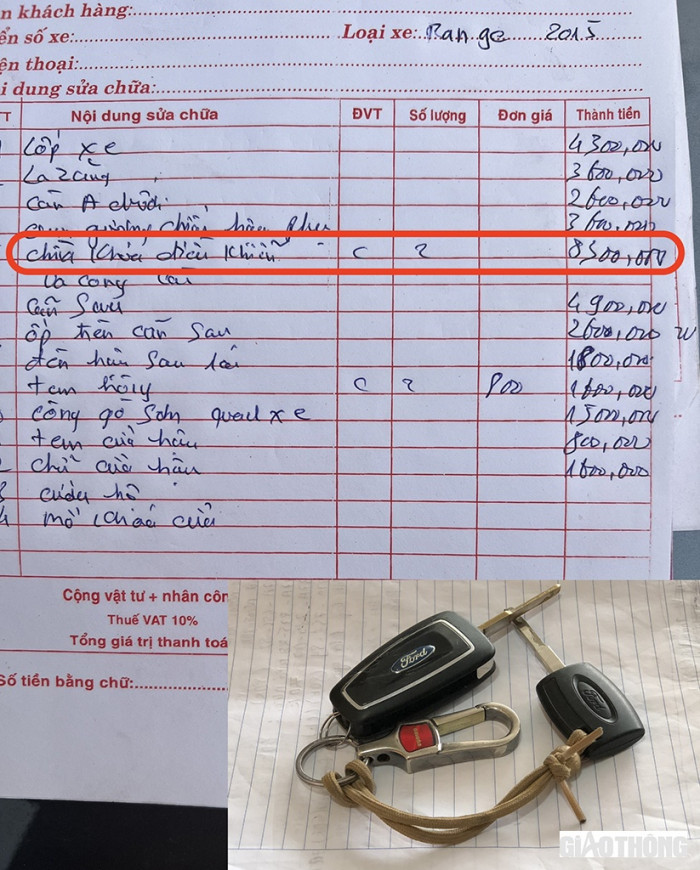 n khách hàng:
ển số xe: Loại xe: Range 2015
ện thoại:
i dung sửa chữa:
TT Nội dung sửa chữa ĐVT Số lượng Đơn giá Thành tiền
Lốp xe 4300,000
Lazăng 3600,000
Cản A dưới 2600,000
gương chiếu hậu 3600,000
chìa khóa điều khiển c 2 8500,000
là công tai
Cản Sau 4900,000
ốp trên cản sau 2600,000
đèn hậu sau lái 1800,000
tem c 2 800 1600,000
công gò Sơn quanh xe 15000,000
tem cửa hậu 800,000
chữ cửa hậu 1600,000
cứu hộ
mở khóa cửa
Cộng vật tư + nhân côn
Thuế VAT 10%
Tổng giá trị thanh toá
Số tiền bằng chữ:
Ford
Ford
GIAOTHÔNG